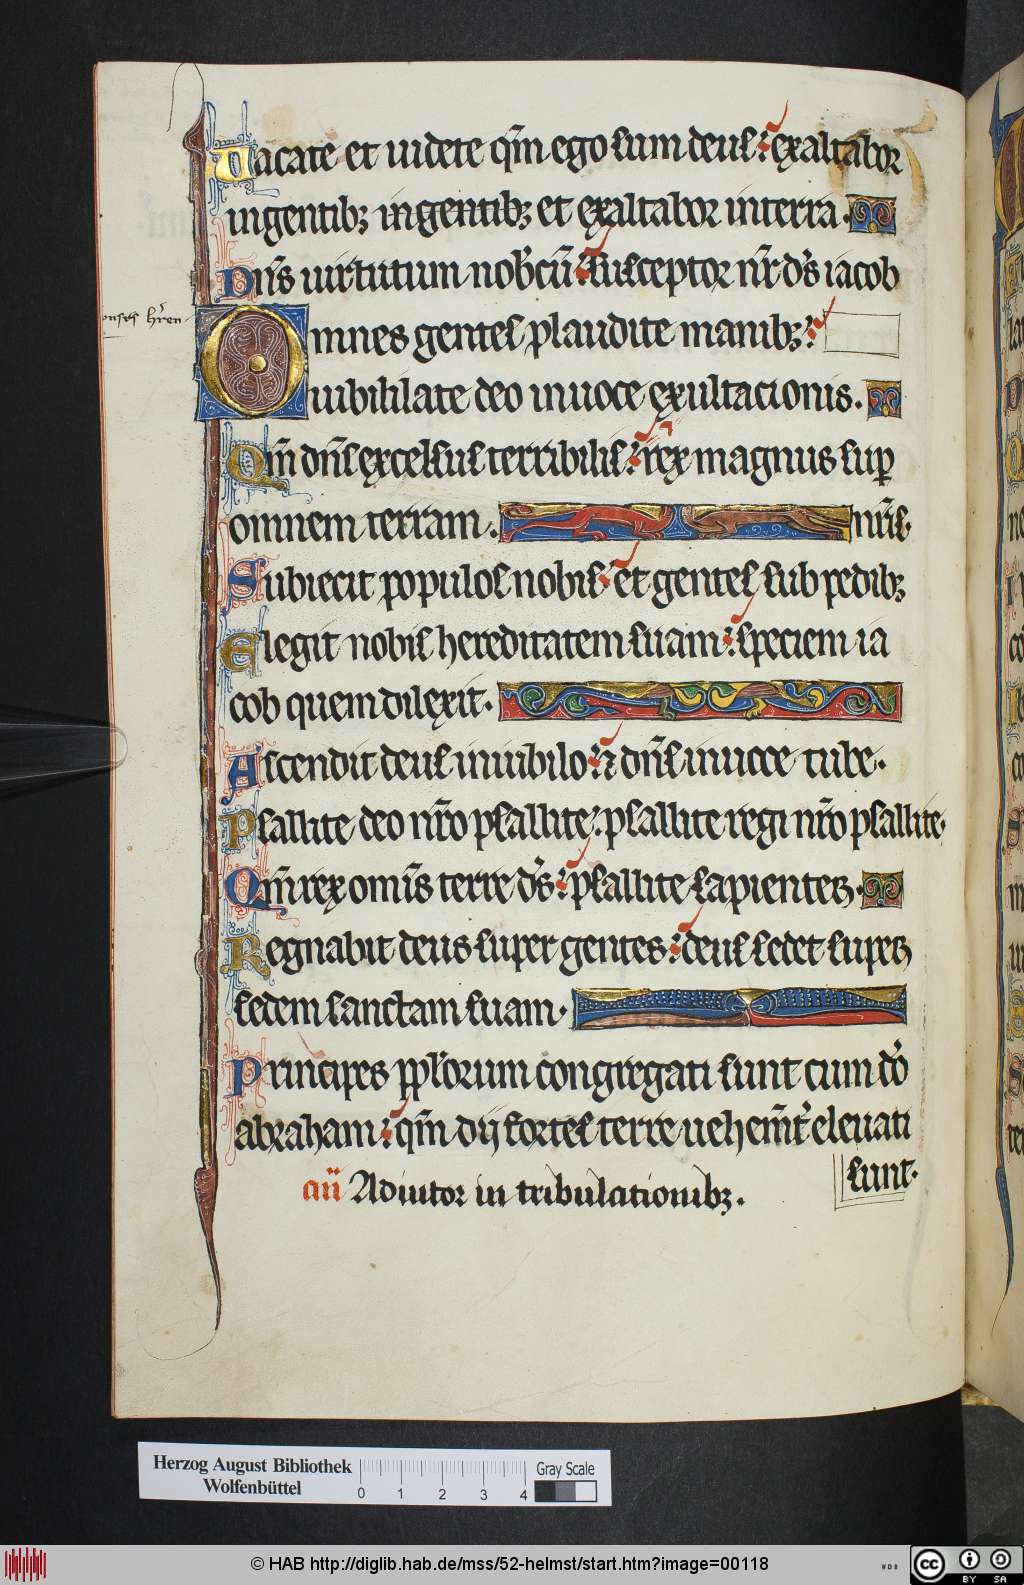 Vacate et uidete qm̄ ego sum deus: exaltabor
ingentibꝫ ingentibꝫ et exaltabor interra.
Dn̄s uirtutum nob̓cū: susceptor nr̄ ds̄ iacob
Omnes gentes plaudite manibꝫ:
iubililate deo inuoce exultacionis.
Qm̄ dn̄s excelsus terribilis: rex magnus sup̄
omnem terram. nr̄is.
Subiecit populos nobis: et gentes sub pedibꝫ
Elegit nobis hereditatem suam: speciem ia
cob quem dilexit.
Ascendit deus iniubilo: ⁊ dn̄s inuoce tube.
Psallite deo nr̄o psallite: psallite regi nr̄o psallite.
Qm̄ rex omīs terre ds̄: psallite sapienter.
Regnabit deus super gentes: deus sedet super
sedem sanctam suam.
Principes pp̄lorum congregati sunt cum dō
abraham: qm̄ dij fortes terre uehem̄t̓ eleuati
sunt.
añ Adiutor in tribulationibꝫ.
Herzog August Bibliothek
Wolfenbüttel
0 1 2 3 4
Gray Scale
© HAB http://diglib.hab.de/mss/52-helmst/start.htm?image=00118
cc BY SA